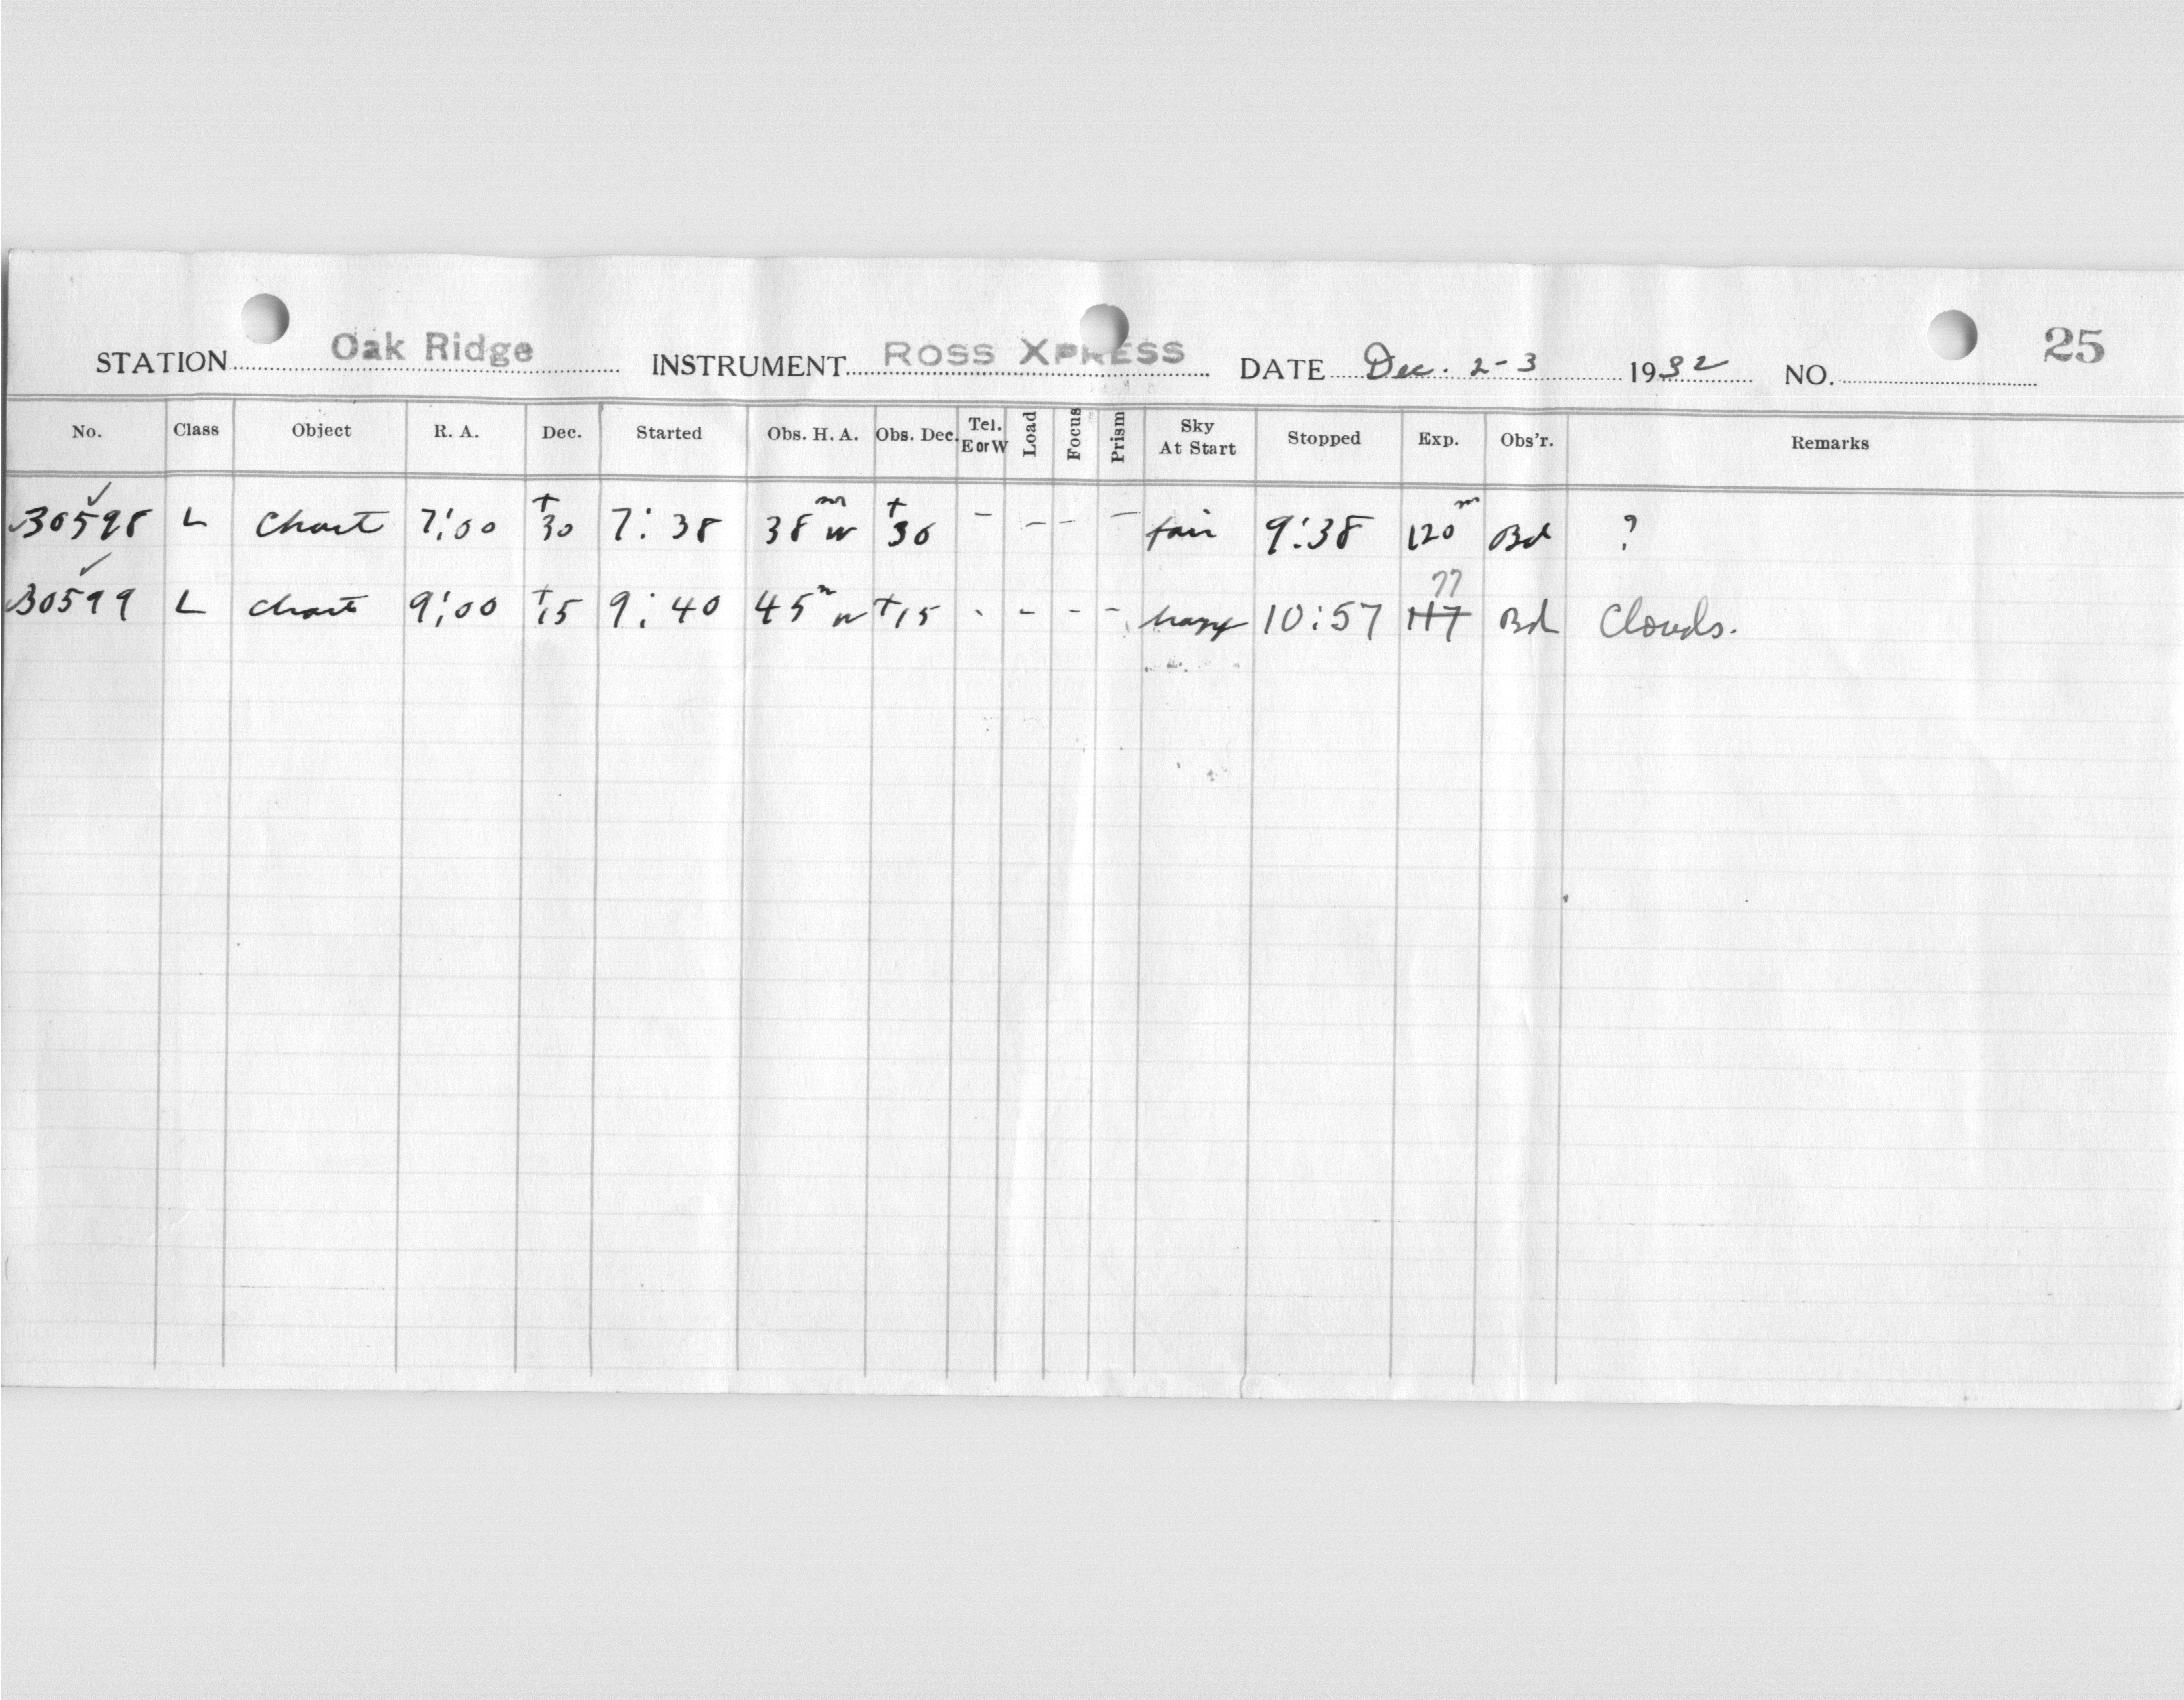 25
STATION Oak Ridge INSTRUMENT ROSS XPRESS DATE Dec. 2-3 1932 NO.
No. Class Object R. A. Dec. Started Obs. H. A. Obs. Dec. Tel. E or W Load Focus Prism Sky At Start Stopped Exp. Obs'r. Remarks
✓30598 ✓ L Chart 7:00 +30 7:38 38m w +30 - - - - fair 9:38 120m Bd ?
✓30599 ✓ L chart 9:00 +15 9:40 45m w +15 - - - - hazy 10:57 117 77 Bd Clouds.